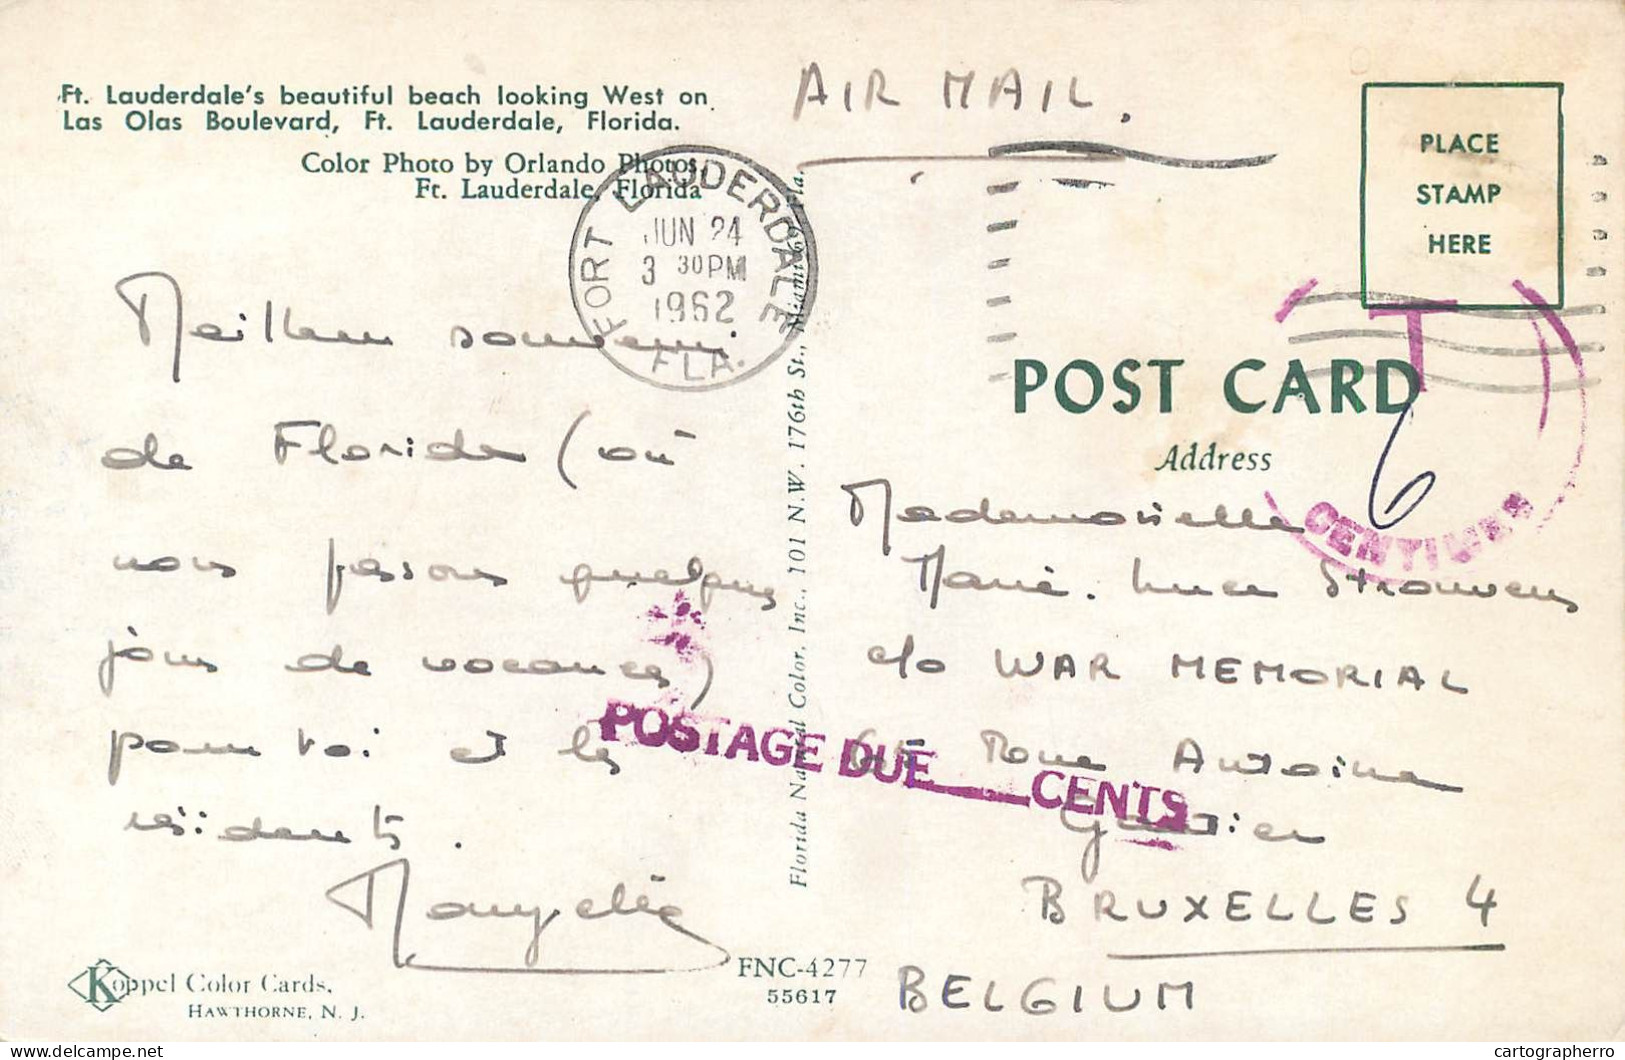 Ft. Lauderdale's beautiful beach looking West on
Las Olas Boulevard, Ft. Lauderdale, Florida.
Color Photo by Orlando Photos,
Ft. Lauderdale, Florida
AIR MAIL.
PLACE
STAMP
HERE
FORT LAUDERDALE
JUN 24
3 30 PM
1962
FLA.
T
6
CENTIMES
POST CARD
Address
Meilleur souvenir
de Floride (où
nous passons quelques
jours de vacances)
pour toi et les
résidents.
Mademoiselle
Marie-Luce Strouvens
c/o WAR MEMORIAL
Rue Antoine
BRUXELLES 4
BELGIUM
POSTAGE DUE CENTS
Florida Natural Color, Inc., 101 N.W. 176th St., Miami 69, Fla.
Koppel Color Cards,
HAWTHORNE, N. J.
FNC-4277
55617
cartographerro